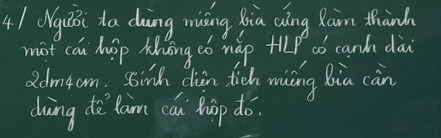 4/ Người ta dùng miếng bìa cứng làm thành
một cái hộp không có nắp HLP có cạnh dài
2dm4cm. Tính diện tích miếng bìa cần
dùng để làm cái hộp đó.